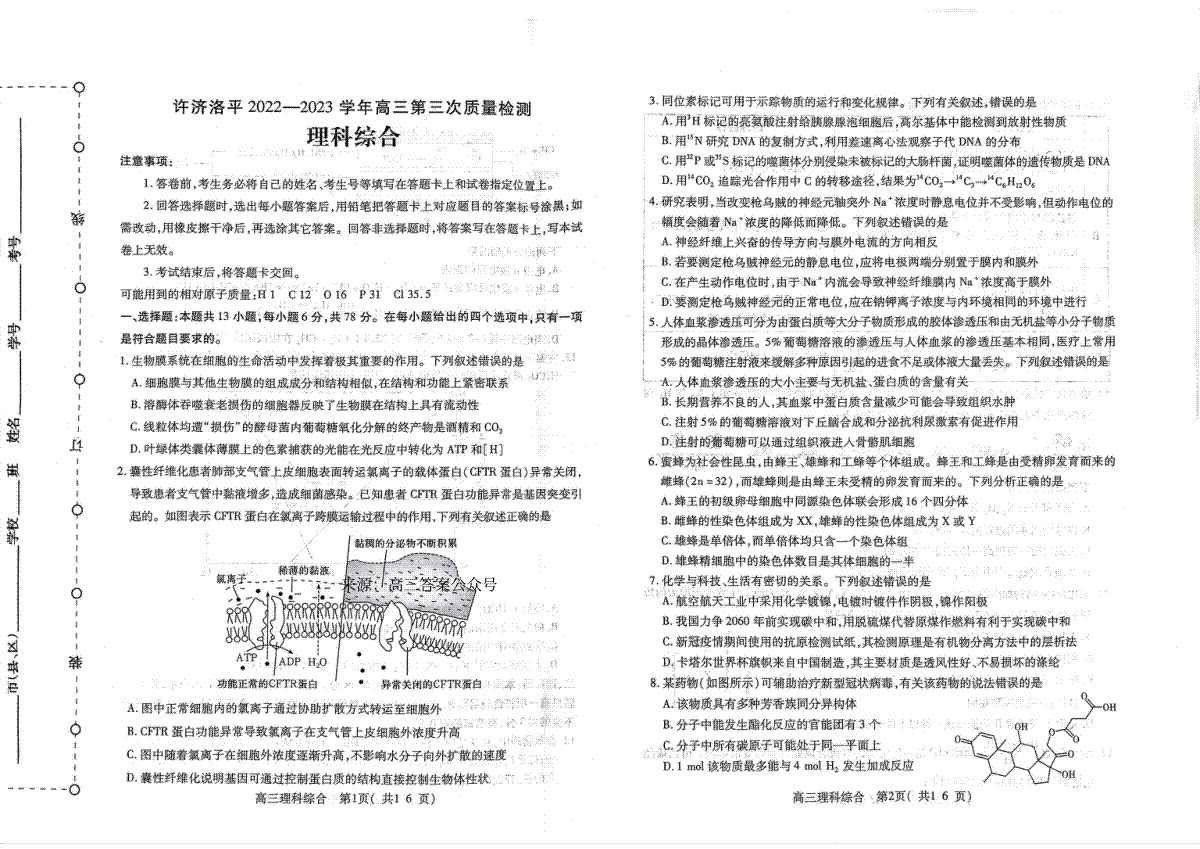 许济洛平 2022—2023 学年高三第三次质量检测
理科综合
注意事项:
1. 答卷前,考生务必将自己的姓名、考生号等填写在答题卡上和试卷指定位置上。
2. 回答选择题时,选出每小题答案后,用铅笔把答题卡上对应题目的答案标号涂黑;如
需改动,用橡皮擦干净后,再选涂其它答案。回答非选择题时,将答案写在答题卡上,写本试
卷上无效。
3. 考试结束后,将答题卡交回。
可能用到的相对原子质量:H 1 C 12 O 16 P 31 Cl 35.5
一、选择题:本题共 13 小题,每小题 6 分,共 78 分。在每小题给出的四个选项中,只有一项
是符合题目要求的。
1. 生物膜系统在细胞的生命活动中发挥着极其重要的作用。下列叙述错误的是
A. 细胞膜与其他生物膜的组成成分和结构相似,在结构和功能上紧密联系
B. 溶酶体吞噬衰老损伤的细胞器反映了生物膜在结构上具有流动性
C. 线粒体均遭“损伤”的酵母菌内葡萄糖氧化分解的终产物是酒精和 CO₂
D. 叶绿体类囊体薄膜上的色素捕获的光能在光反应中转化为 ATP 和[H]
2. 囊性纤维化患者肺部支气管上皮细胞表面转运氯离子的载体蛋白(CFTR 蛋白)异常关闭,
导致患者支气管中黏液增多,造成细菌感染。已知患者 CFTR 蛋白功能异常是基因突变引
起的。如图表示 CFTR 蛋白在氯离子跨膜运输过程中的作用,下列有关叙述正确的是
黏稠的分泌物不断积累
氯离子
稀薄的黏液
来源:高三答案公众号
ATP
ADP
H₂O
功能正常的CFTR蛋白
异常关闭的CFTR蛋白
A. 图中正常细胞内的氯离子通过协助扩散方式转运至细胞外
B. CFTR 蛋白功能异常导致氯离子在支气管上皮细胞外浓度升高
C. 图中随着氯离子在细胞外浓度逐渐升高,不影响水分子向外扩散的速度
D. 囊性纤维化说明基因可通过控制蛋白质的结构直接控制生物体性状
高三理科综合 第1页( 共1 6 页)
3. 同位素标记可用于示踪物质的运行和变化规律。下列有关叙述,错误的是
A. 用³H 标记的亮氨酸注射给胰腺腺泡细胞后,高尔基体中能检测到放射性物质
B. 用¹⁵N 研究 DNA 的复制方式,利用差速离心法观察子代 DNA 的分布
C. 用³²P 或³⁵S 标记的噬菌体分别侵染未被标记的大肠杆菌,证明噬菌体的遗传物质是 DNA
D. 用¹⁴CO₂ 追踪光合作用中 C 的转移途径,结果为¹⁴CO₂→¹⁴C₃→¹⁴C₆H₁₂O₆
4. 研究表明,当改变枪乌贼的神经元轴突外 Na⁺ 浓度时静息电位并不受影响,但动作电位的
幅度会随着 Na⁺ 浓度的降低而降低。下列叙述错误的是
A. 神经纤维上兴奋的传导方向与膜外电流的方向相反
B. 若要测定枪乌贼神经元的静息电位,应将电极两端分别置于膜内和膜外
C. 在产生动作电位时,由于 Na⁺ 内流会导致神经纤维膜内 Na⁺ 浓度高于膜外
D. 要测定枪乌贼神经元的正常电位,应在钠钾离子浓度与内环境相同的环境中进行
5. 人体血浆渗透压可分为由蛋白质等大分子物质形成的胶体渗透压和由无机盐等小分子物质
形成的晶体渗透压。5% 葡萄糖溶液的渗透压与人体血浆的渗透压基本相同,医疗上常用
5% 的葡萄糖注射液来缓解多种原因引起的进食不足或体液大量丢失。下列叙述错误的是
A. 人体血浆渗透压的大小主要与无机盐、蛋白质的含量有关
B. 长期营养不良的人,其血浆中蛋白质含量减少可能会导致组织水肿
C. 注射 5% 的葡萄糖溶液对下丘脑合成和分泌抗利尿激素有促进作用
D. 注射的葡萄糖可以通过组织液进入骨骼肌细胞
6. 蜜蜂为社会性昆虫,由蜂王、雄蜂和工蜂等个体组成。蜂王和工蜂是由受精卵发育而来的
雌蜂(2n=32),而雄蜂则是由蜂王未受精的卵发育而来的。下列分析正确的是
A. 蜂王的初级卵母细胞中同源染色体联会形成 16 个四分体
B. 雌蜂的性染色体组成为 XX,雄蜂的性染色体组成为 X 或 Y
C. 雄蜂是单倍体,而单倍体均只含一个染色体组
D. 雄蜂精细胞中的染色体数目是其体细胞的一半
7. 化学与科技、生活有密切的关系。下列叙述错误的是
A. 航空航天工业中采用化学镀镍,电镀时镀件作阴极,镍作阳极
B. 我国力争 2060 年前实现碳中和,用脱硫煤代替原煤作燃料有利于实现碳中和
C. 新冠疫情期间使用的抗原检测试纸,其检测原理是有机物分离方法中的层析法
D. 卡塔尔世界杯旗帜来自中国制造,其主要材质是透风性好、不易损坏的涤纶
8. 某药物(如图所示)可辅助治疗新型冠状病毒,有关该药物的说法错误的是
A. 该物质具有多种芳香族同分异构体
B. 分子中能发生酯化反应的官能团有 3 个
C. 分子中所有碳原子可能处于同一平面上
D. 1 mol 该物质最多能与 4 mol H₂ 发生加成反应
O
OH
O
O
OH
O
O
OH
高三理科综合 第2页( 共1 6 页)
线
订
装
考号
学号
姓名
班
学校
市(县、区)